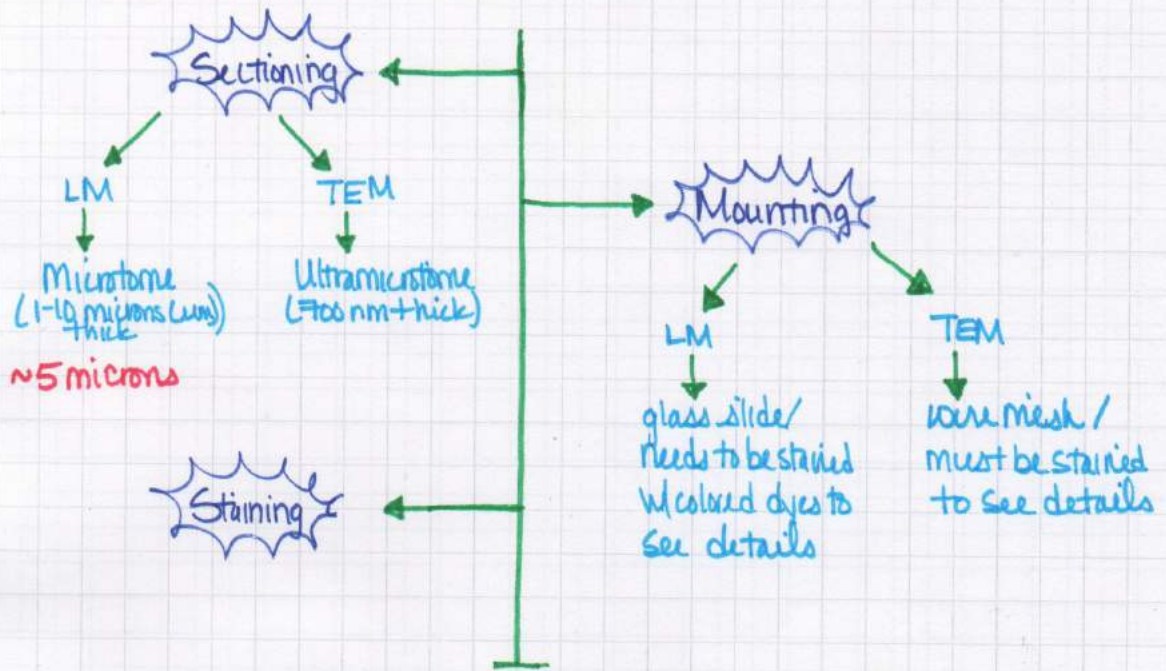 Sectioning
LM
TEM
Microtome
(1-10 microns (um))
thick
~5 microns
Ultramicrotome
(700nm thick)
Mounting
LM
glass slide/
needs to be stained
w/ colored dyes to
see details
TEM
wire mesh /
must be stained
to see details
Staining